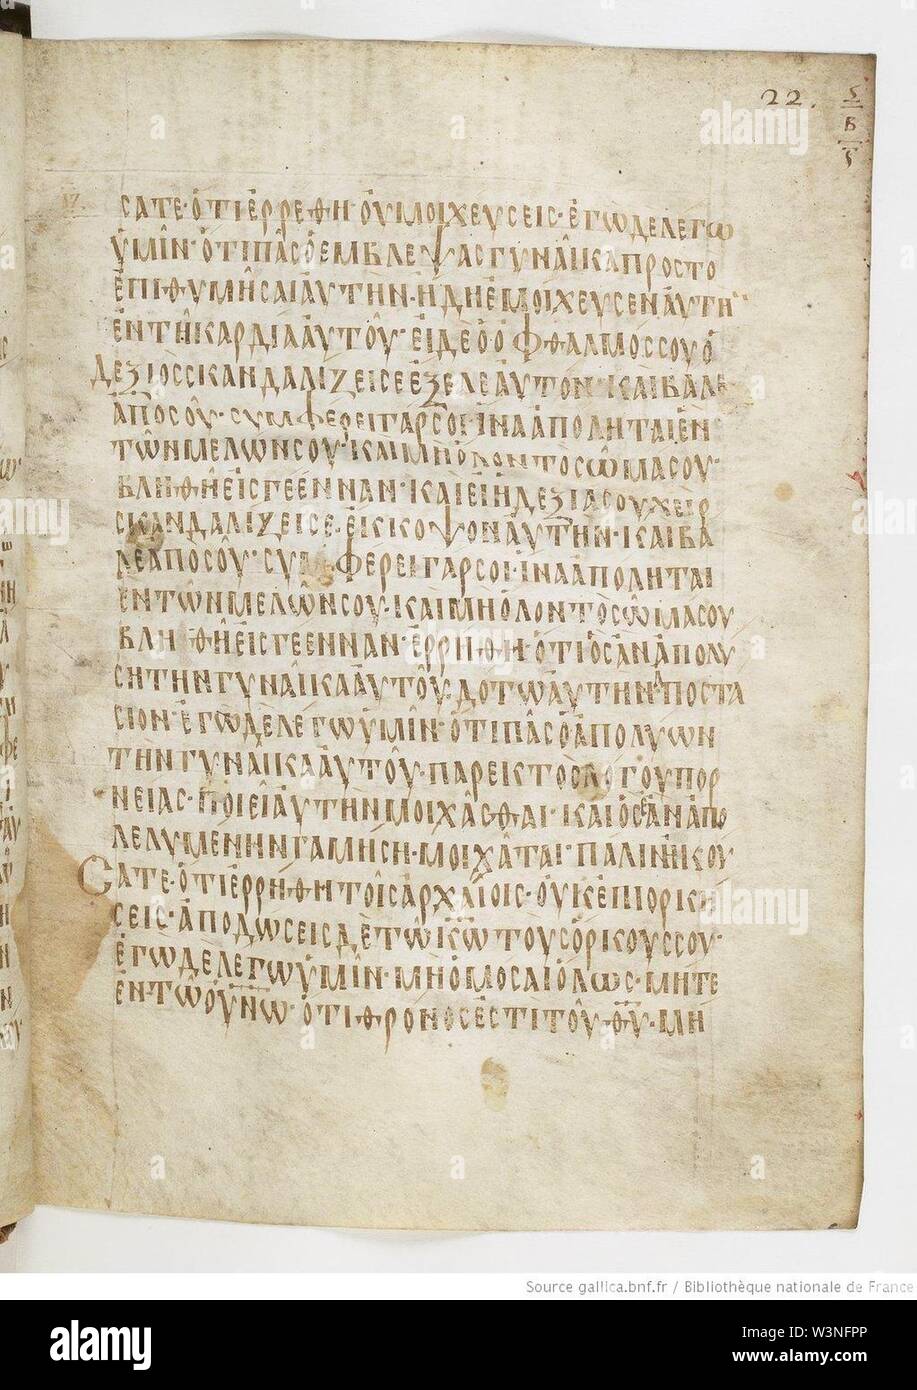 22.
ς
Β
ς
ΣΑΤΕ· ὍΤΙ ἘΡΡΕΘΗ· ΟΥ ΜΟΙΧΕΥΣΕΙΣ· ἘΓΩ ΔΕ ΛΕΓΩ
ὙΜΙΝ· ὍΤΙ ΠΑΣ Ὁ ΕΜΒΛΕΨΑΣ ΓΥΝΑΙΚΑ ΠΡΟΣ ΤΟ
ἘΠΙΘΥΜΗΣΑΙ ΑΥΤΗΝ· ΗΔΗ ΕΜΟΙΧΕΥΣΕΝ ΑΥΤΗ
ἘΝ ΤΗ ΚΑΡΔΙΑ ΑΥΤΟΥ· ΕΙ ΔΕ Ὁ ΟΦΘΑΛΜΟΣ ΣΟΥ Ὁ
ΔΕΞΙΟΣ ΣΚΑΝΔΑΛΙΖΕΙ ΣΕ ΕΞΕΛΕ ΑΥΤΟΝ· ΚΑΙ ΒΑΛΕ
ΑΠΟ ΣΟΥ· ΣΥΜΦΕΡΕΙ ΓΑΡ ΣΟΙ· ΙΝΑ ΑΠΟΛΗΤΑΙ ἘΝ
ΤΩΝ ΜΕΛΩΝ ΣΟΥ· ΚΑΙ ΜΗ ΟΛΟΝ ΤΟ ΣΩΜΑ ΣΟΥ·
ΒΛΗΘΗ ΕΙΣ ΓΕΕΝΝΑΝ· ΚΑΙ ΕΙ Η ΔΕΞΙΑ ΣΟΥ ΧΕΙΡ
ΣΚΑΝΔΑΛΙΖΕΙ ΣΕ· ΕΚΚΟΨΟΝ ΑΥΤΗΝ· ΚΑΙ ΒΑ
ΛΕ ΑΠΟ ΣΟΥ· ΣΥΜΦΕΡΕΙ ΓΑΡ ΣΟΙ· ΙΝΑ ΑΠΟΛΗΤΑΙ
ἘΝ ΤΩΝ ΜΕΛΩΝ ΣΟΥ· ΚΑΙ ΜΗ ΟΛΟΝ ΤΟ ΣΩΜΑ ΣΟΥ
ΒΛΗΘΗ ΕΙΣ ΓΕΕΝΝΑΝ· ΕΡΡΗΘΗ· ὍΤΙ ὉΣ ΑΝ ΑΠΟΛΥ
ΣΗ ΤΗΝ ΓΥΝΑΙΚΑ ΑΥΤΟΥ· ΔΟΤΩ ΑΥΤΗ ΑΠΟΣΤΑ
ΣΙΟΝ· ἘΓΩ ΔΕ ΛΕΓΩ ΥΜΙΝ· ὍΤΙ ΠΑΣ Ὁ ΑΠΟΛΥΩΝ
ΤΗΝ ΓΥΝΑΙΚΑ ΑΥΤΟΥ· ΠΑΡΕΚΤΟΣ ΛΟΓΟΥ ΠΟΡ
ΝΕΙΑΣ· ΠΟΙΕΙ ΑΥΤΗΝ ΜΟΙΧΑΣΘΑΙ· ΚΑΙ ὉΣ ΕΑΝ ΑΠΟ
ΛΕΛΥΜΕΝΗΝ ΓΑΜΗΣΗ· ΜΟΙΧΑΤΑΙ· ΠΑΛΙΝ ΗΚΟΥ
ΣΑΤΕ· ὍΤΙ ΕΡΡΗΘΗ ΤΟΙΣ ΑΡΧΑΙΟΙΣ· ΟΥΚ ΕΠΙΟΡΚΗ
ΣΕΙΣ· ΑΠΟΔΩΣΕΙΣ ΔΕ ΤΩ ΚΩ ΤΟΥΣ ΟΡΚΟΥΣ ΣΟΥ·
ἘΓΩ ΔΕ ΛΕΓΩ ΥΜΙΝ· ΜΗ ΟΜΟΣΑΙ ΟΛΩΣ· ΜΗΤΕ
ἘΝ ΤΩ ΟΥΝΩ· ὍΤΙ ΘΡΟΝΟΣ ΕΣΤΙ ΤΟΥ ΘΥ· ΜΗ
Source gallica.bnf.fr / Bibliothèque nationale de France
alamy
Image ID: W3NFPP
www.alamy.com